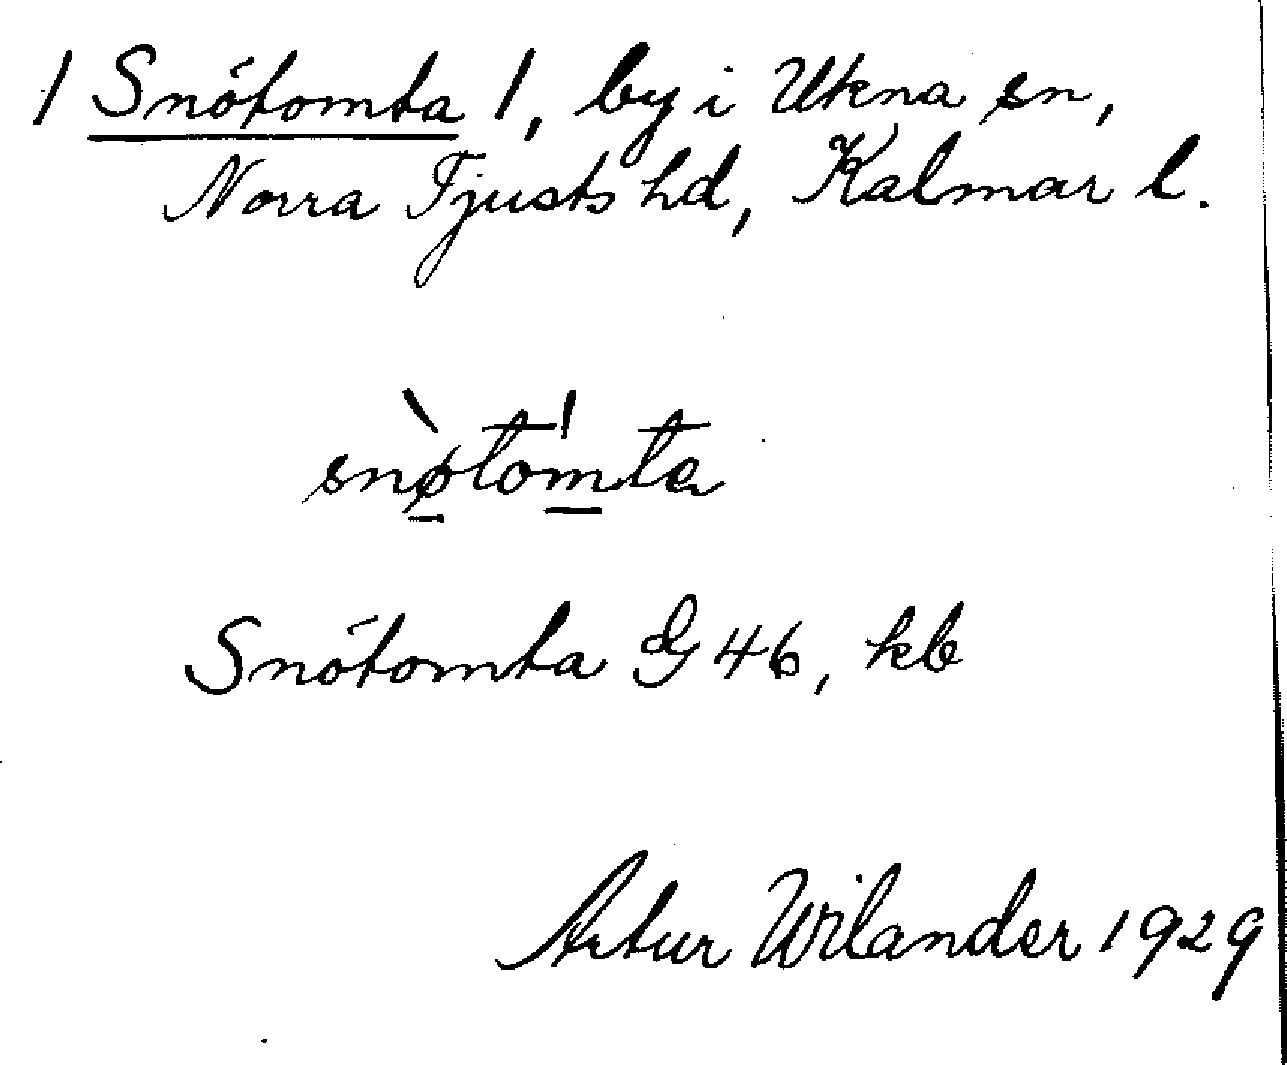 / Snötomta /, by i Ukna sn,
Norra Tjusts hd, Kalmar l.
snø̀tom̍ta
Snötomta G 46, kb
Artur Wilander 1929